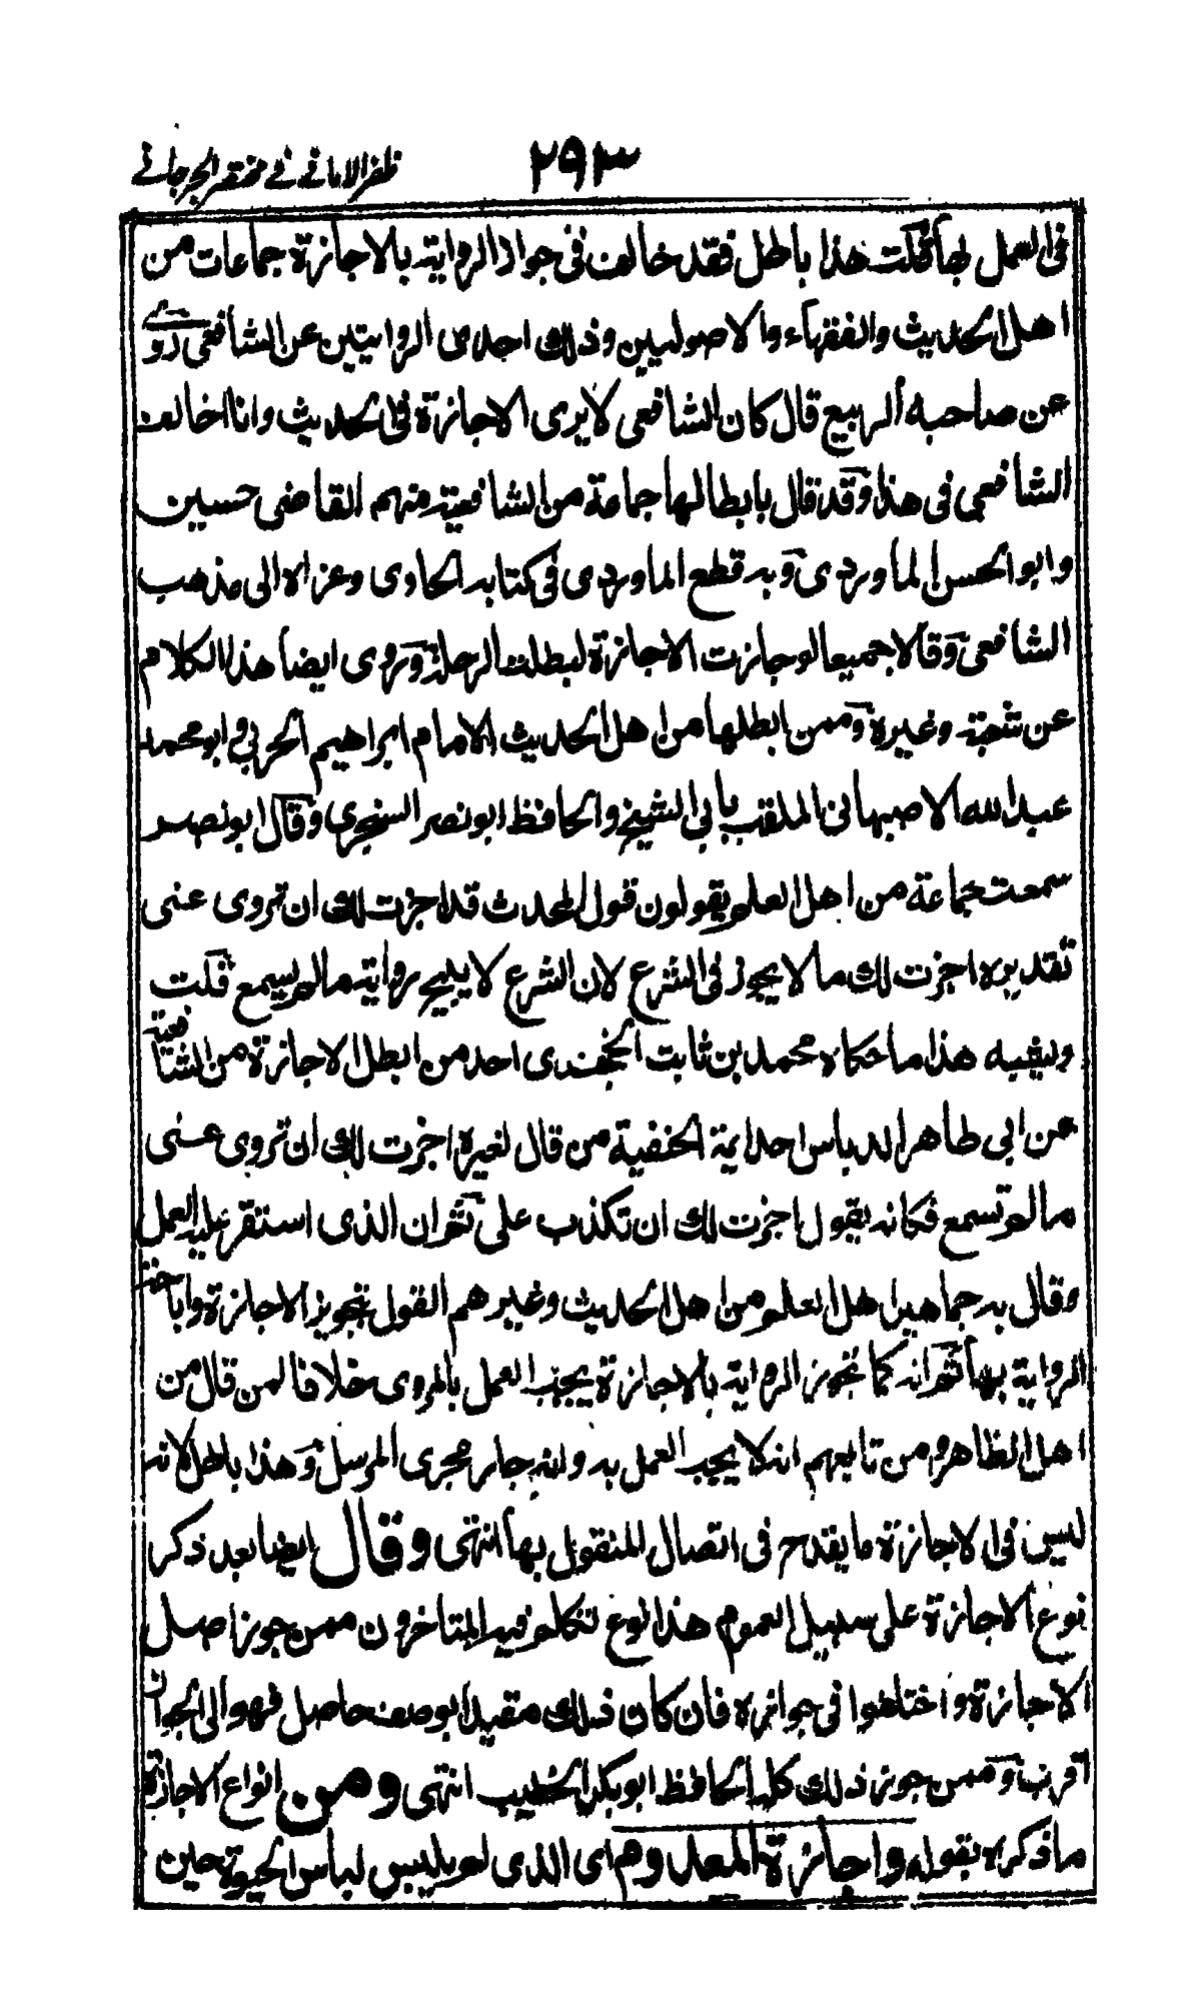 ٢٩٣
ظفر الامانی فی مختصر الجرجانی
فی العمل بها قلت هذا باطل فقد خالف فی جواز الروایة بالاجازة جماعات من
اهل الحدیث والفقهاء والاصولیین وذلك احدی الروایتین عن الشافعی روی
عن صاحبه الربیع قال كان الشافعی لا یری الاجازة فی الحدیث وانا اخالف
الشافعی فی هذا وقد قال بابطالها جماعة من الشافعیة منهم القاضی حسین
وابو الحسن الماوردی وبه قطع الماوردی فی كتابه الحاوی وعزاه الی مذهب
الشافعی وقالا جمیعا لو جازت الاجازة لبطلت الرحلة وروی ایضا هذا الكلام
عن شعبة وغیره وممن ابطلها من اهل الحدیث الامام ابراهیم الحربی وابو محمد
عبد الله الاصبهانی الملقب بابی الشیخ والحافظ ابو نصر السنجری وقال ابو نصر
سمعت جماعة من اهل العلم یقولون قول المحدث قد اجزت لك ان تروی عنی
تقدیره اجزت لك ما لا یجوز فی الشرع لان الشرع لا یبیح روایة ما لم یسمع قلت
ویشبه هذا ما حكاه محمد بن ثابت الخجندی احد من ابطل الاجازة من الشافعیة
عن ابی طاهر الدباس احد ایمة الحنفیة من قال لغیره اجزت لك ان تروی عنی
ما لم تسمع فكانه یقول اجزت لك ان تكذب علی ثم ان الذی استقر علیه العمل
وقال به جماهیر اهل العلم من اهل الحدیث وغیرهم القول بتجویز الاجازة واباحة
الروایة بها ثم انه كما تجوز الروایة بالاجازة یجب العمل بالمروی خلافا لمن قال من
اهل الظاهر ومن تابعهم انه لا یجب العمل به وانه جار مجری المرسل وهذا باطل لانه
لیس فی الاجازة ما یقدح فی اتصال المنقول بها انتهی وقال ایضا بعد ذكر
نوع الاجازة علی سبیل العموم هذا نوع تكلم فیه المتاخرون ممن جوز اصل
الاجازة واختلفوا فی جوازه فان كان ذلك مقیدا بوصف حاصل فهو الی الجواز
اقرب وممن جوز ذلك كله الحافظ ابو بكر الخطیب انتهی ومن انواع الاجازة
ما ذكره بقوله واجازة المعدوم ای الذی لم یلبس لباس الحیوة حین